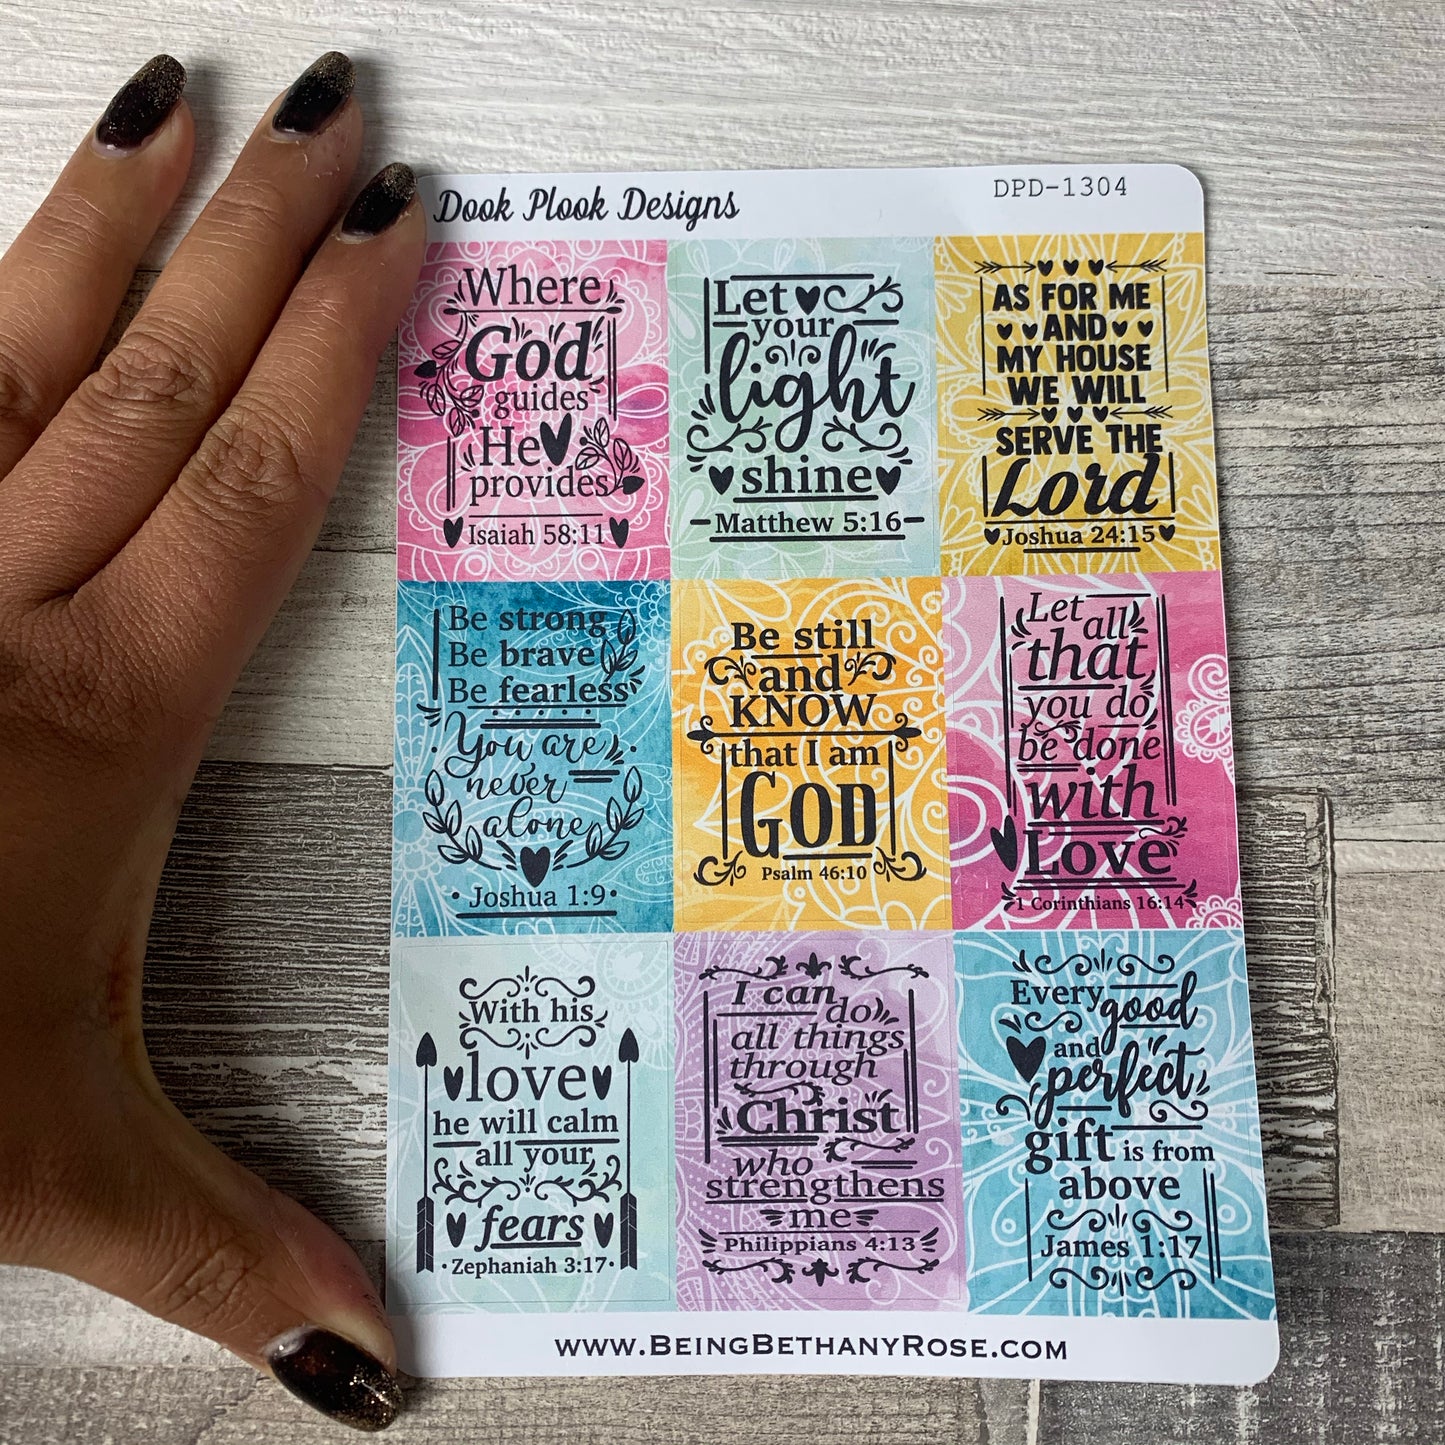 Dook Plook Designs
DPD-1304
Where
God
guides
He
provides
Isaiah 58:11
Let
your
light
shine
Matthew 5:16
AS FOR ME
AND
MY HOUSE
WE WILL
SERVE THE
Lord
Joshua 24:15
Be strong
Be brave
Be fearless
You are
never
alone
Joshua 1:9
Be still
and
KNOW
that I am
GOD
Psalm 46:10
Let all
that
you do
be done
with
Love
1 Corinthians 16:14
With his
love
he will calm
all your
fears
Zephaniah 3:17
I can do
all things
through
Christ
who
strengthens
me
Philippians 4:13
Every good
and
perfect
gift is from
above
James 1:17
www.BeingBethanyRose.com